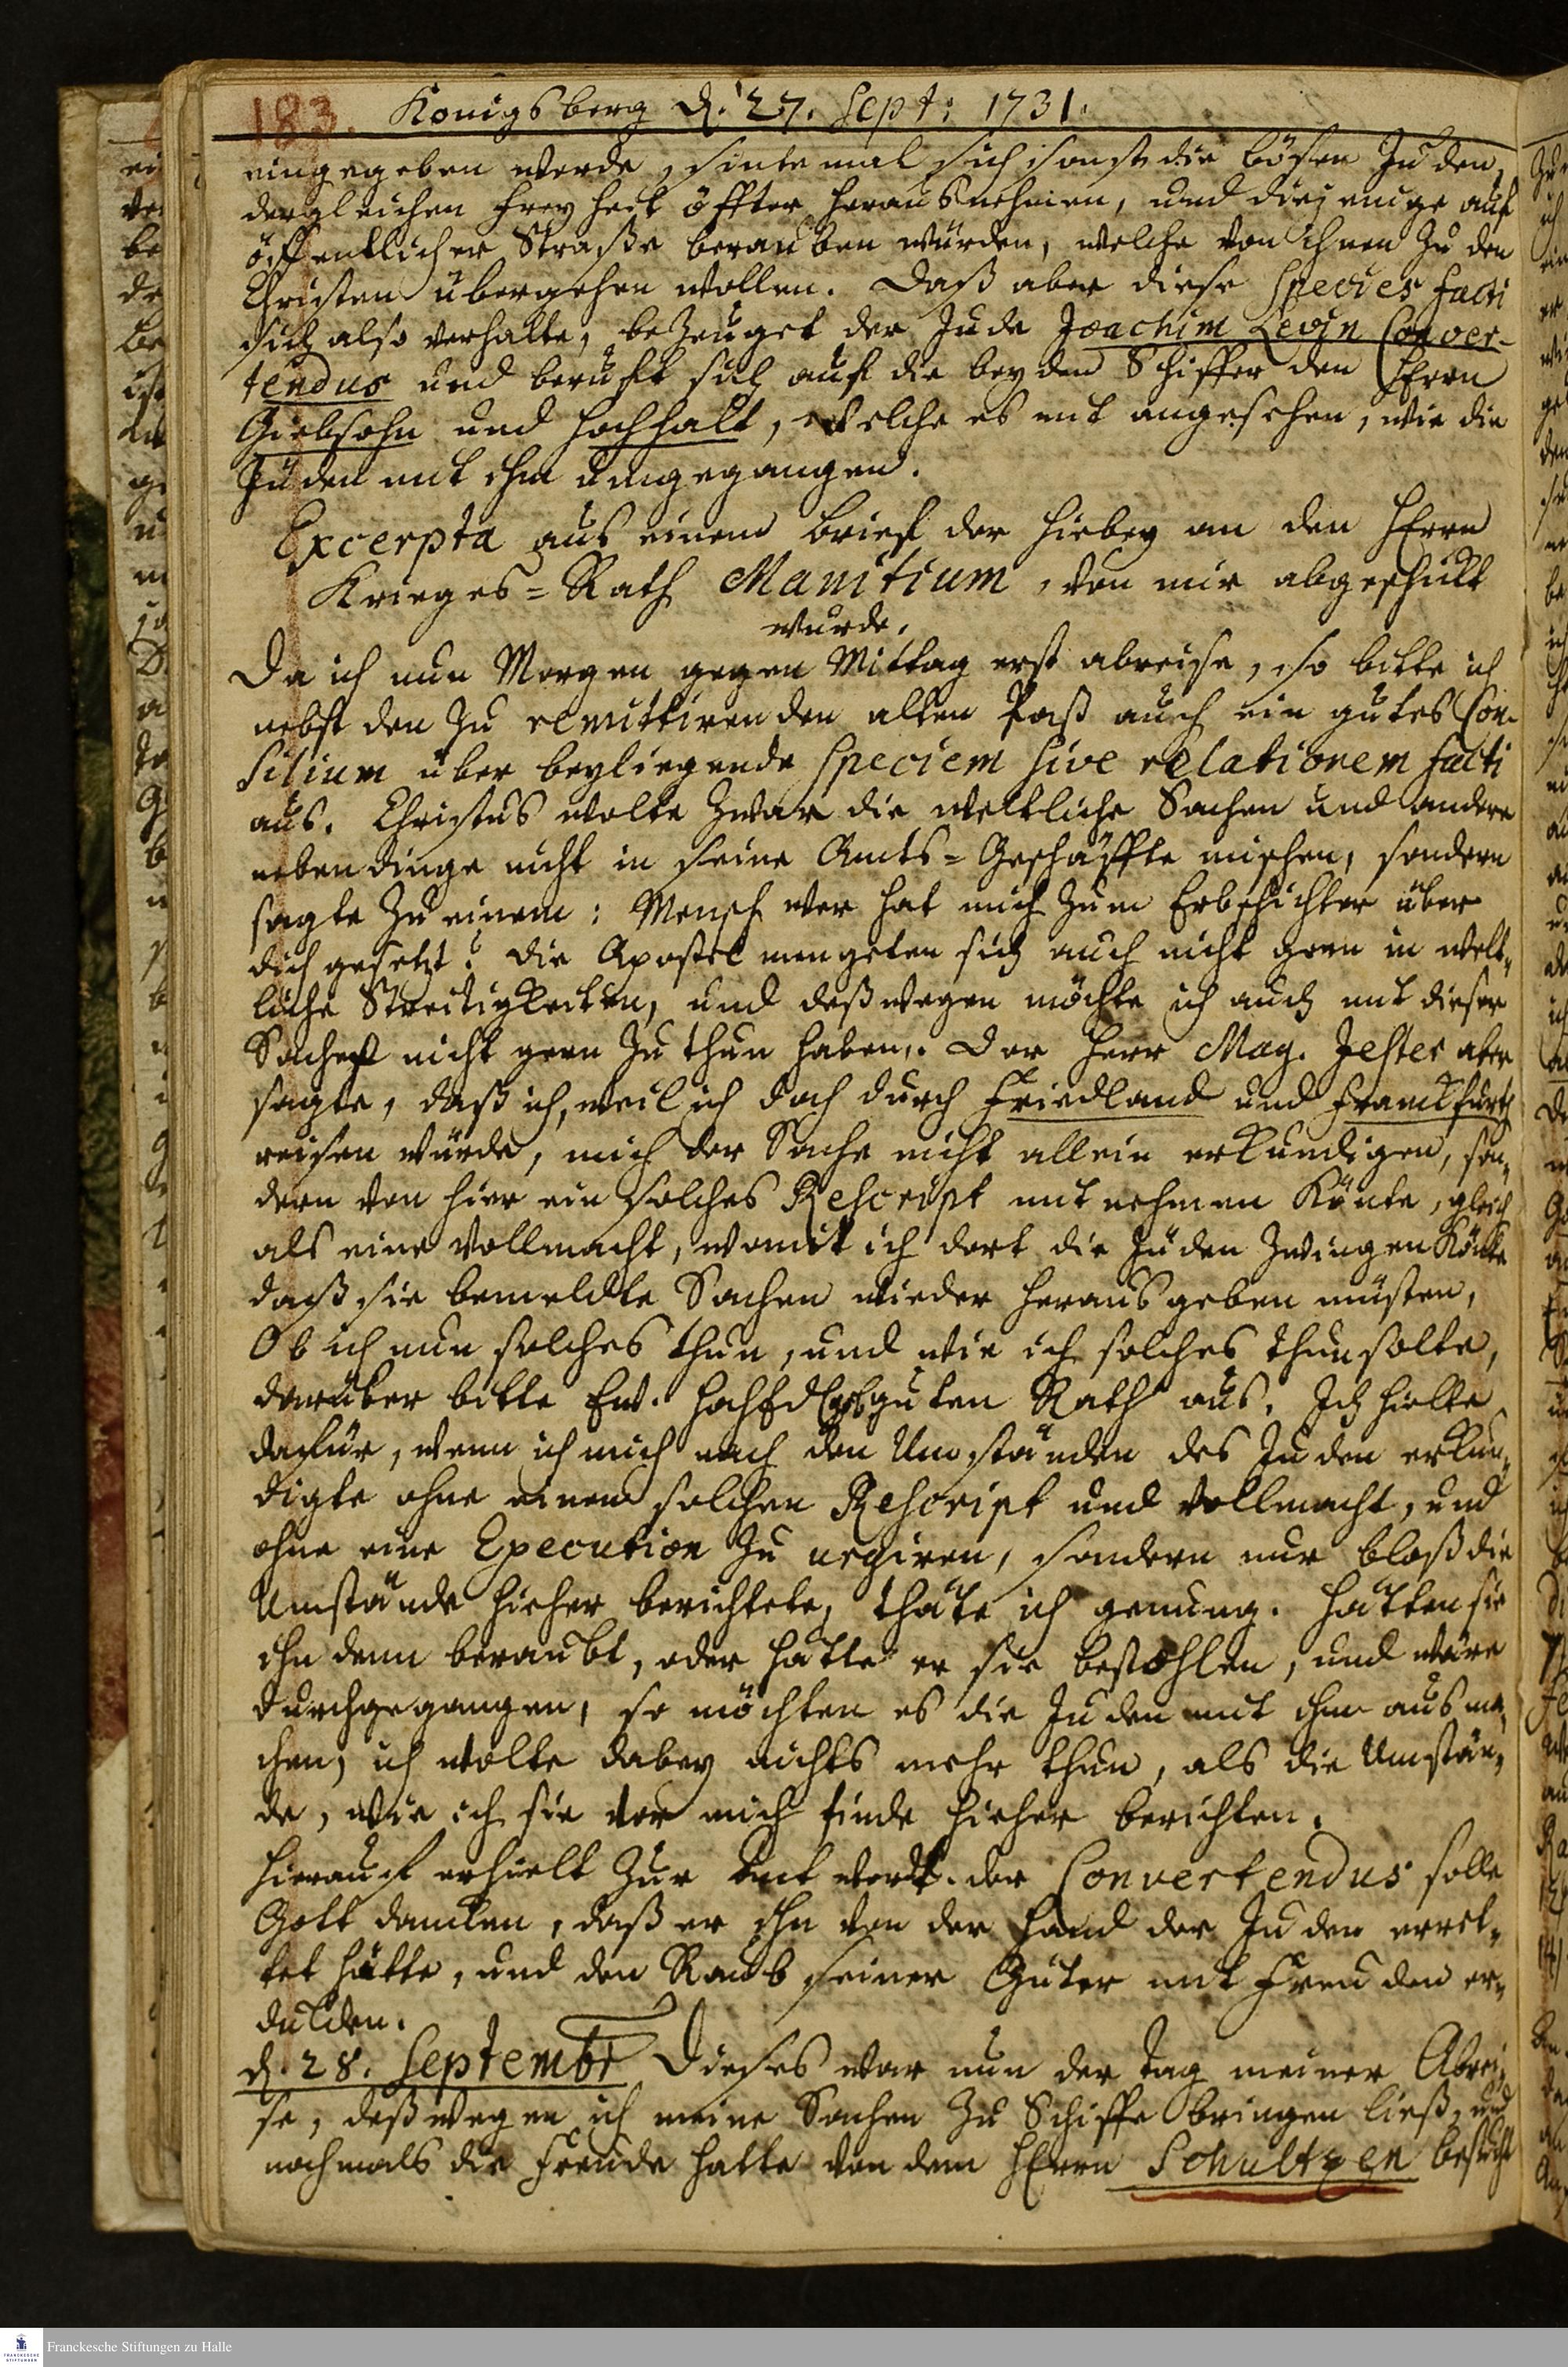 183. Königsberg d. 27. Sept: 1731.
eingegeben werde, sintemal sich sonst die bösen Juden,
dergleichen Freyheit öffter herausnehmen, und diejenige auf
öffentlicher Straße berauben würden, welche von ihnen zu den
Christen übergehen wollen. Daß aber diese Species facti
sich also verhalte, bezeuget der Jude Joachim Levin Conver-
tendus und berufft sich auf die beyden Schiffer den HErrn
Giebsohn und Hochhalt, welche es mit angesehen, wie die
Juden mit ihm umgegangen.
Excerpta aus einem Brief der hiebey an den HErrn
Krieges=Rath Manitium, von mir abgeschickt
wurde.
Da ich nun Morgen gegen Mittag erst abreise, so bitte ich
nebst den zu remittirenden alten Paß auch ein gutes Con-
silium über beyliegende Speciem sive relationem facti
aus. Christus wolte zwar die weltliche Sachen und andere
neben dinge nicht in seine Amts=Geschäffte mischen, sondern
sagte zu einem: Mensch wer hat mich zum Erbschichter über
dich gesetzt? die Apostel mengeten sich auch nicht gern in welt-
liche Streitigkeiten, und deßwegen möchte ich auch mit dieser
Sache nicht gern zu thun haben. Der Herr Mag. Jester aber
sagte, daß ich, weil ich doch durch Friedland und Franckfurth
reisen würde, mich der Sache nicht allein erkundigen, son-
dern von hier ein solches Rescript mit nehmen könte, gleich
als eine Vollmacht, womit ich dort die Juden zwingen könte
daß sie bemeldte Sachen wieder heraus geben müsten,
Ob ich nun solches thun, und wie ich solches thun solte,
darüber bitte Ew. guten Rath aus. Ich hielte
dafür, wenn ich mich nach den Umständen des Juden erkun-
digte ohne einem solchen Rescript und Vollmacht, und
ohne eine Execution zu urgiren, sondern nur bloß die
Umstände hieher berichtete, thäte ich genung. Hätten sie
ihn denn beraubt, oder hätte er sie bestohlen, und wäre
durchgegangen, so möchten es die Juden mit ihm ausma-
chen, ich wolte dabey nichts mehr thun, als die Umstän-
de, wie ich sie vor mich finde hieher berichten.
Hierauf erhielt zur Antwort. der Convertendus solle
Gott dancken, daß er ihn von der Hand der Juden erret-
tet hätte, und den Raub seiner Güter mit Freuden er-
dulden.
d. 28. Septembr Dieses war nun der Tag meiner Abrei-
se, deßwegen ich meine Sachen zu Schiffe bringen ließ, und
nochmals die Freude hatte von dem HErrn Schultzen besucht
Franckesche Stiftungen zu Halle